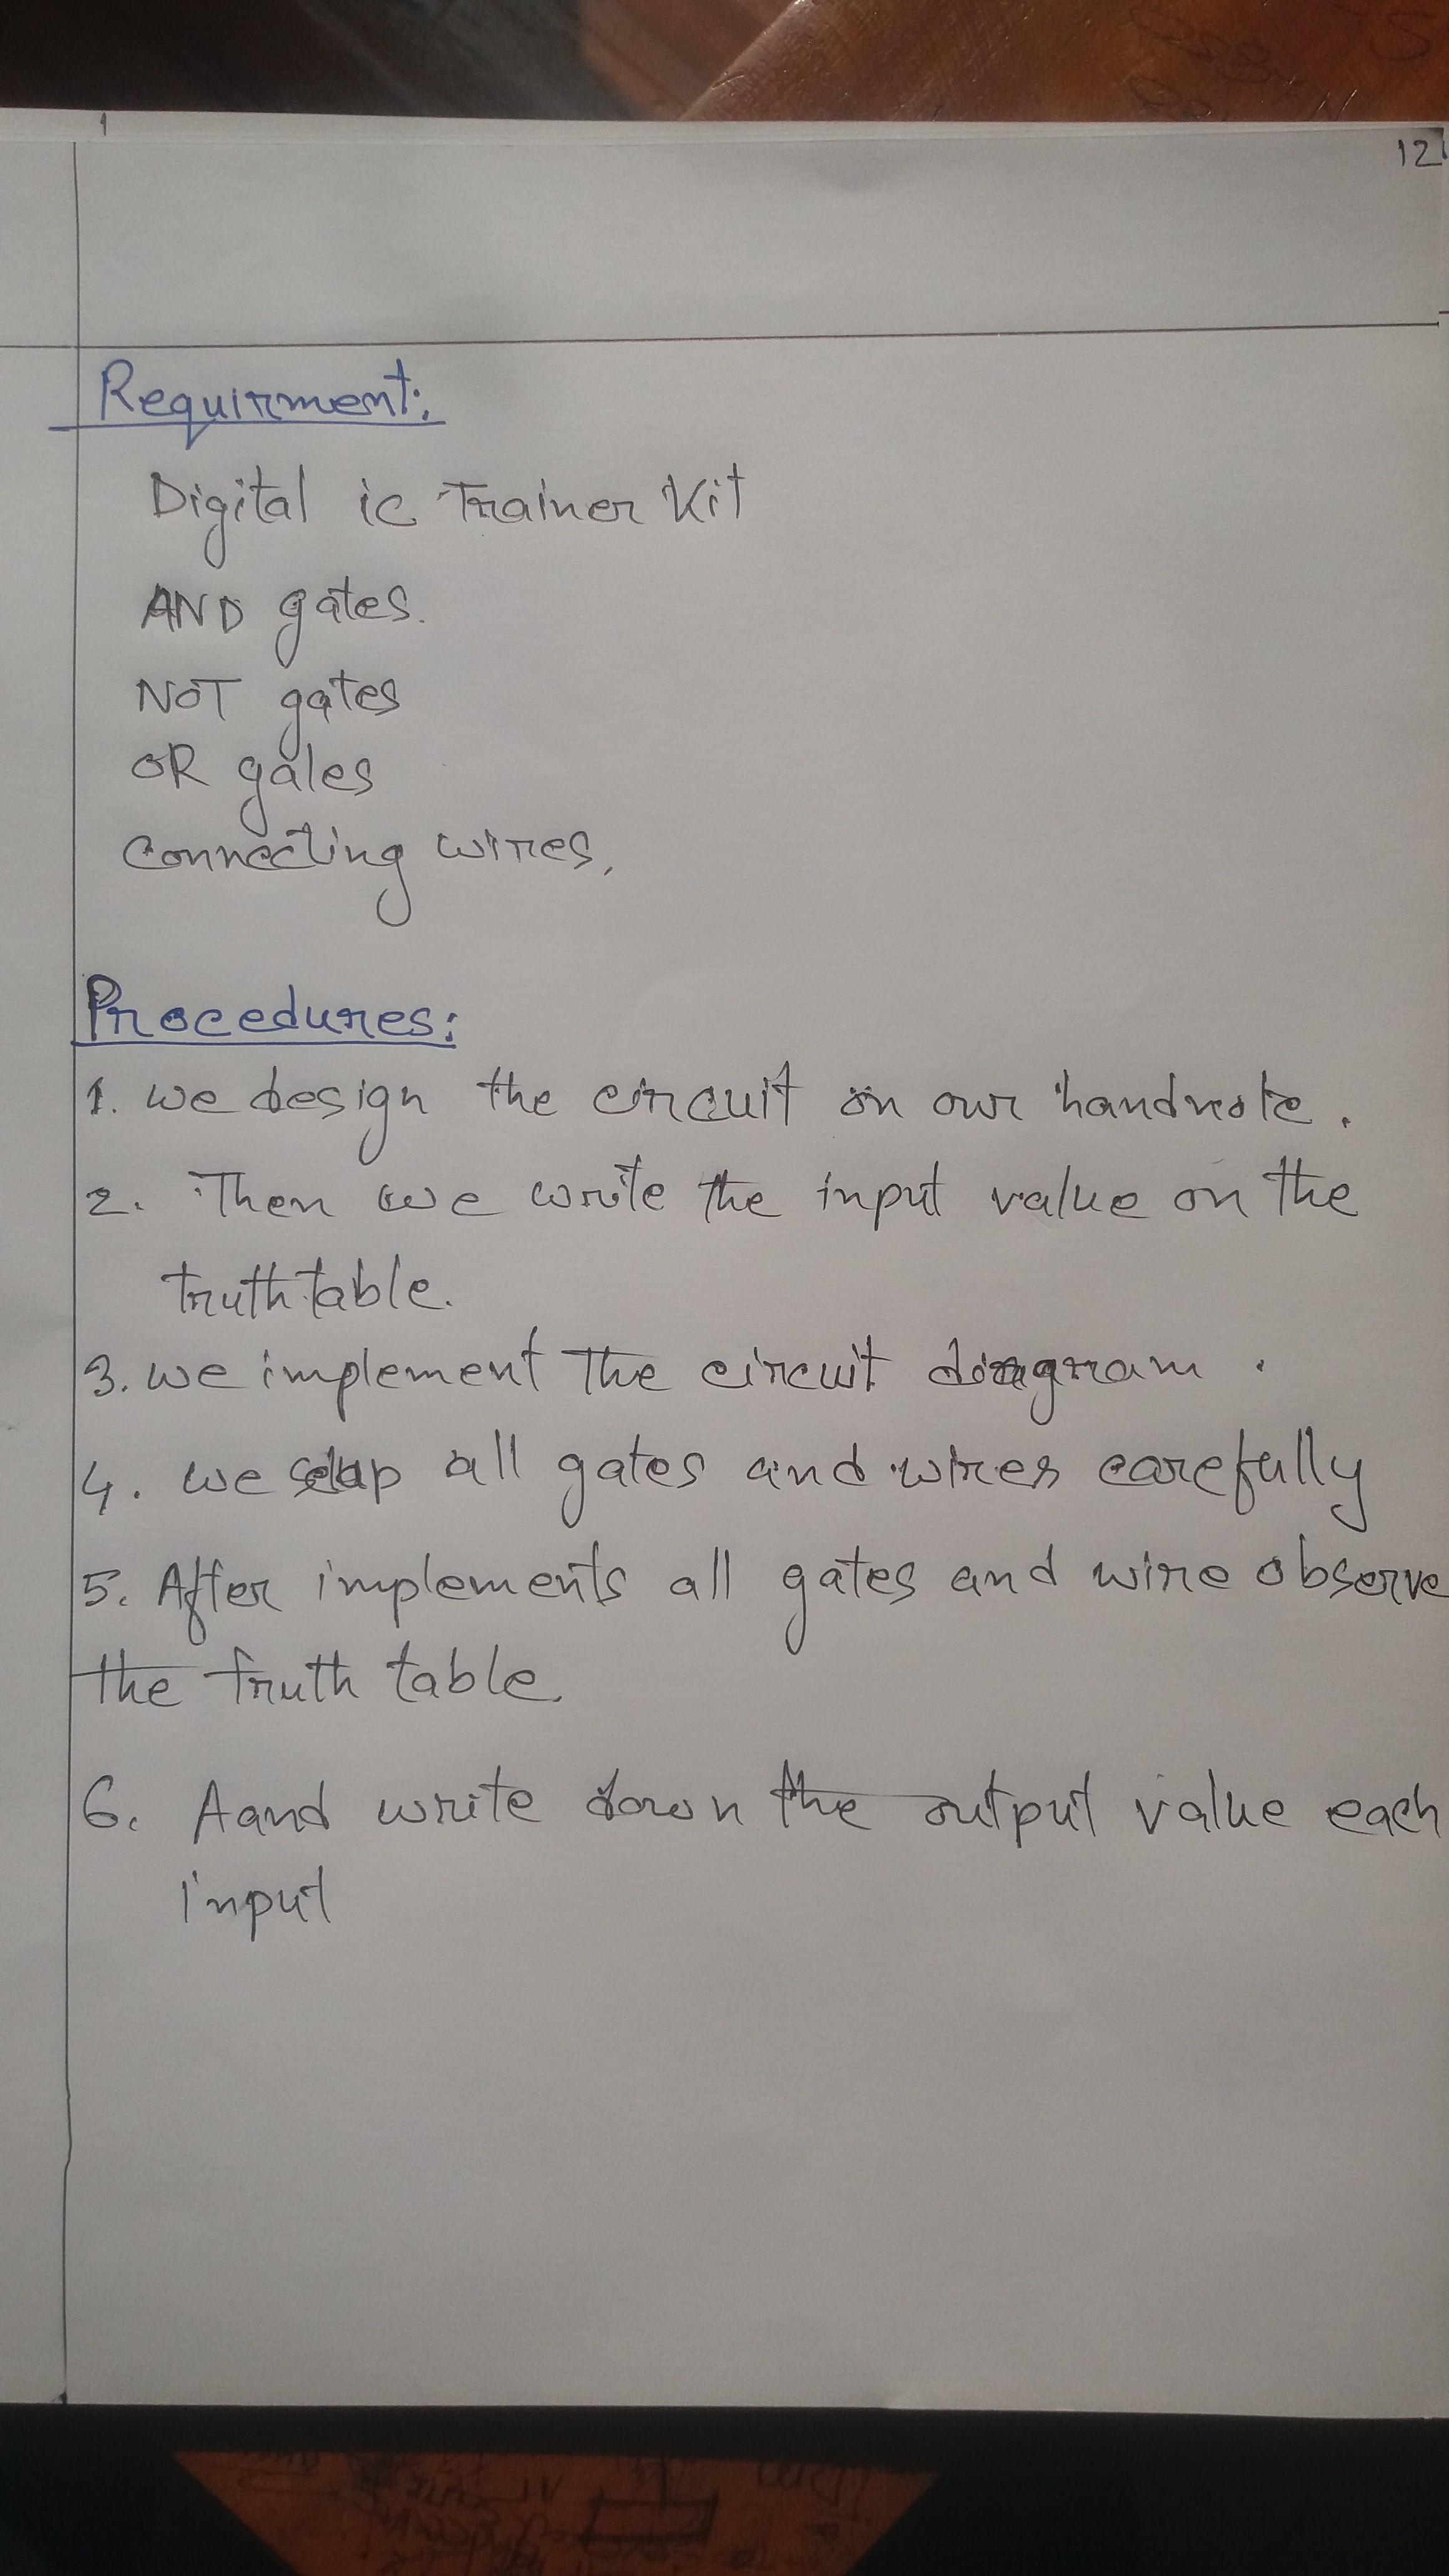 12
Requirment:
Digital ic Trainer Kit
AND gates.
NOT gates
OR gates
Connecting wires,
Procedures:
1. we design the circuit on our handnote.
2. Then we write the input value on the
truth table.
3. we implement the circuit diagram.
4. we setup all gates and wires carefully
5. After implements all gates and wire observe
the truth table.
6. Aand write down the output value each
input